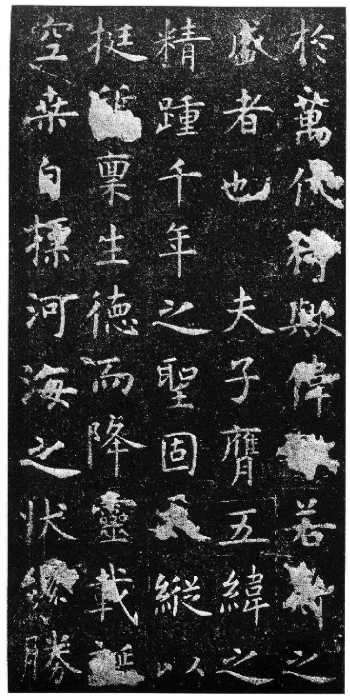 於萬代猗歟偉若之
盛者也 夫子膺五緯之
精踵千年之聖固天縱以
挺稟生德而降靈載誕
空桑自標河海之狀纔勝